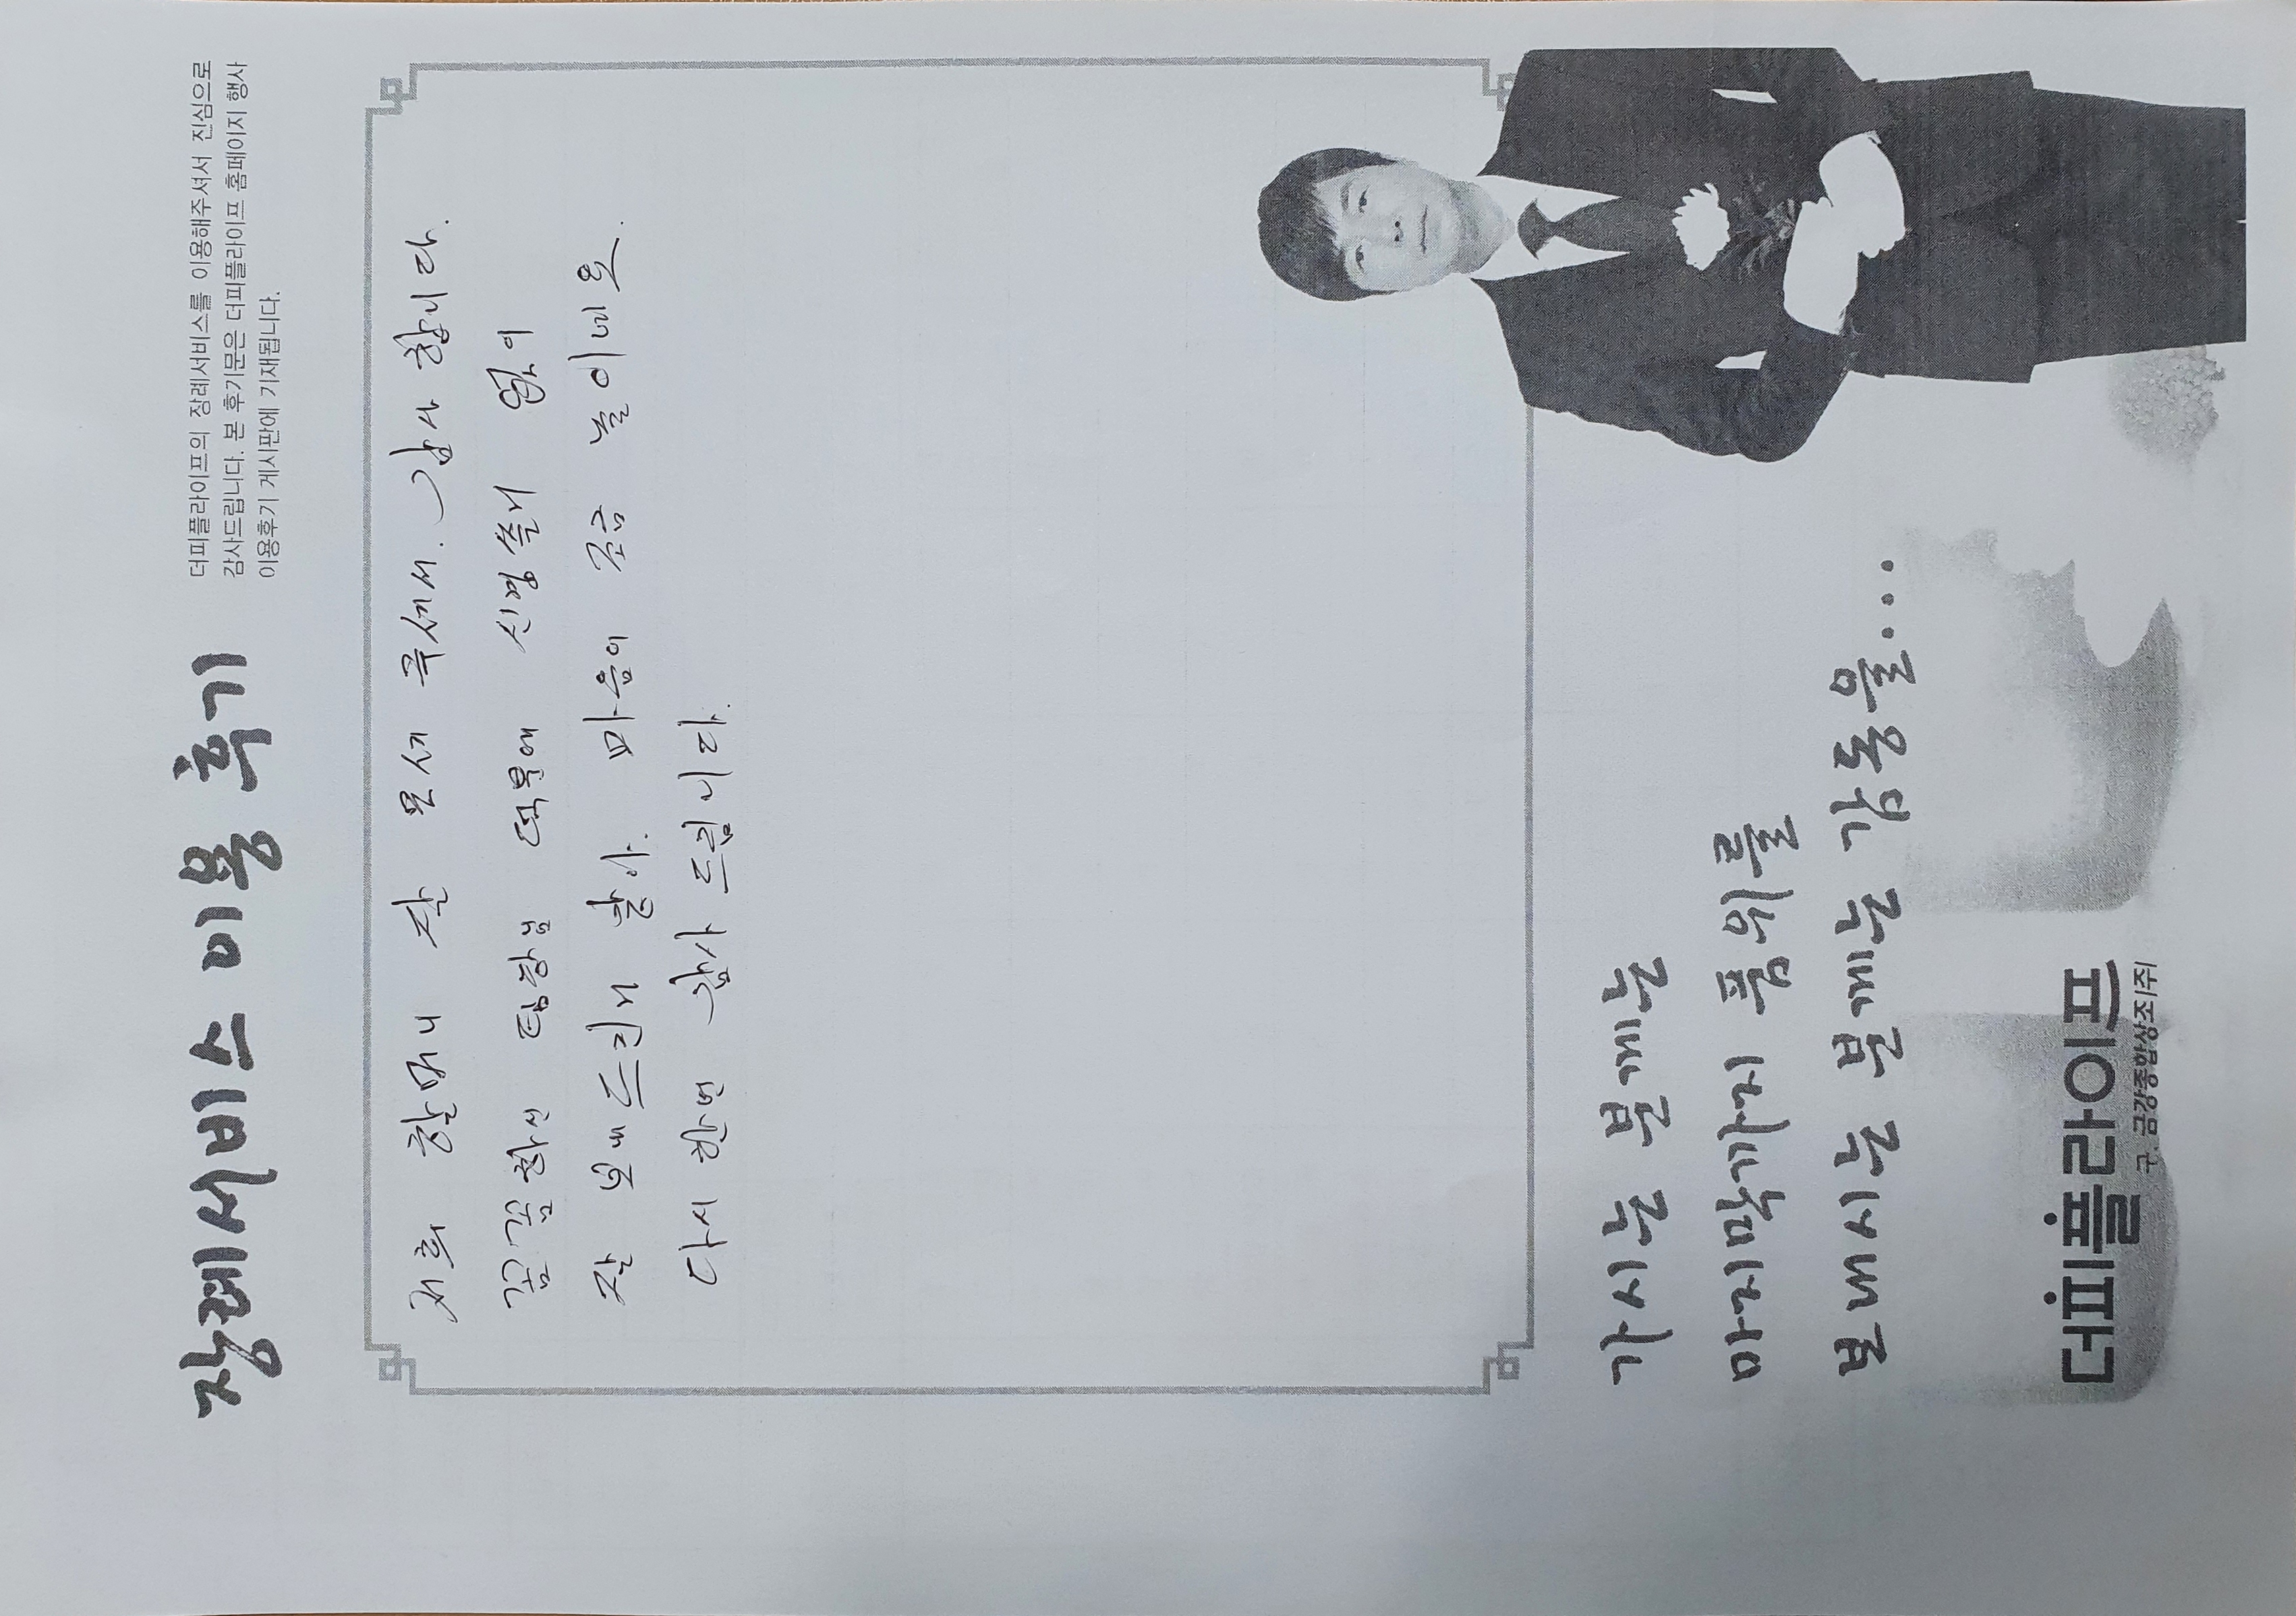 장례서비스 이용 후기
더피플라이프의 장례서비스를 이용해주셔서 진심으로
감사드립니다. 본 후기문은 더피플라이프 홈페이지 행사
이용후기 게시판에 기재됩니다.
저희 할머니 잘 모셔 주셔서. 감사 합니다.
꼼꼼하신 팀장님 덕분에 신경쓸게 없이
잘 보내드린거 같아. 마음이 조금 놓이네요.
다시 한번 감사 드립니다.
가시는 분께는
마지막까지 품위를
보내시는 분께는 감동을...
더피플라이프
구. 금강종합상조(주)